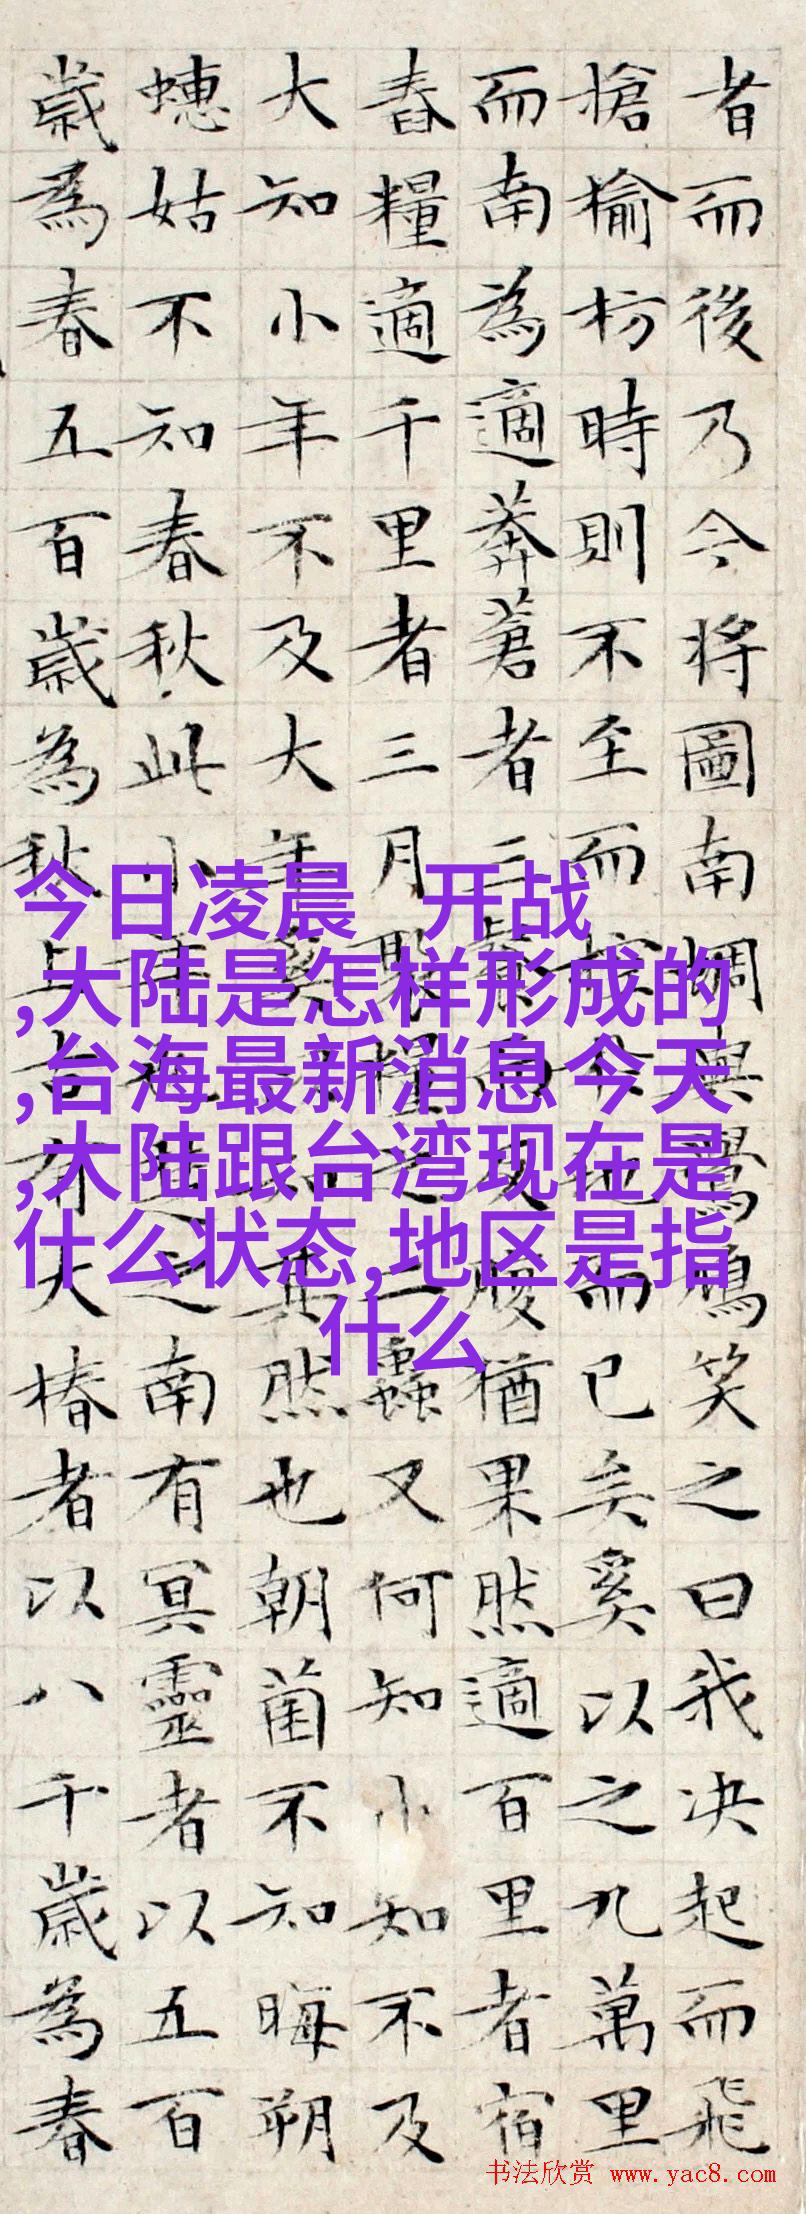 者而後乃今將圖南蜩與鷽鳩笑之曰我决起而飛
搶榆枋時則不至而控於地而已矣奚以之九萬里
而南為適莽蒼者三飡而反腹猶果然適百里者宿
舂糧適千里者三月聚糧之二蟲又何知小知不及
大知小年不及大年奚以知其然也朝菌不知晦朔
蟪姑不知春秋此小年也楚之南有冥靈者以五百
歲為春五百歲為秋上古有大椿者以八千歲為春
今日凌晨 开战
,大陆是怎样形成的
,台海最新消息今天
,大陆跟台湾现在是
什么状态,地区是指
什么
书法欣赏 www.yac8.com